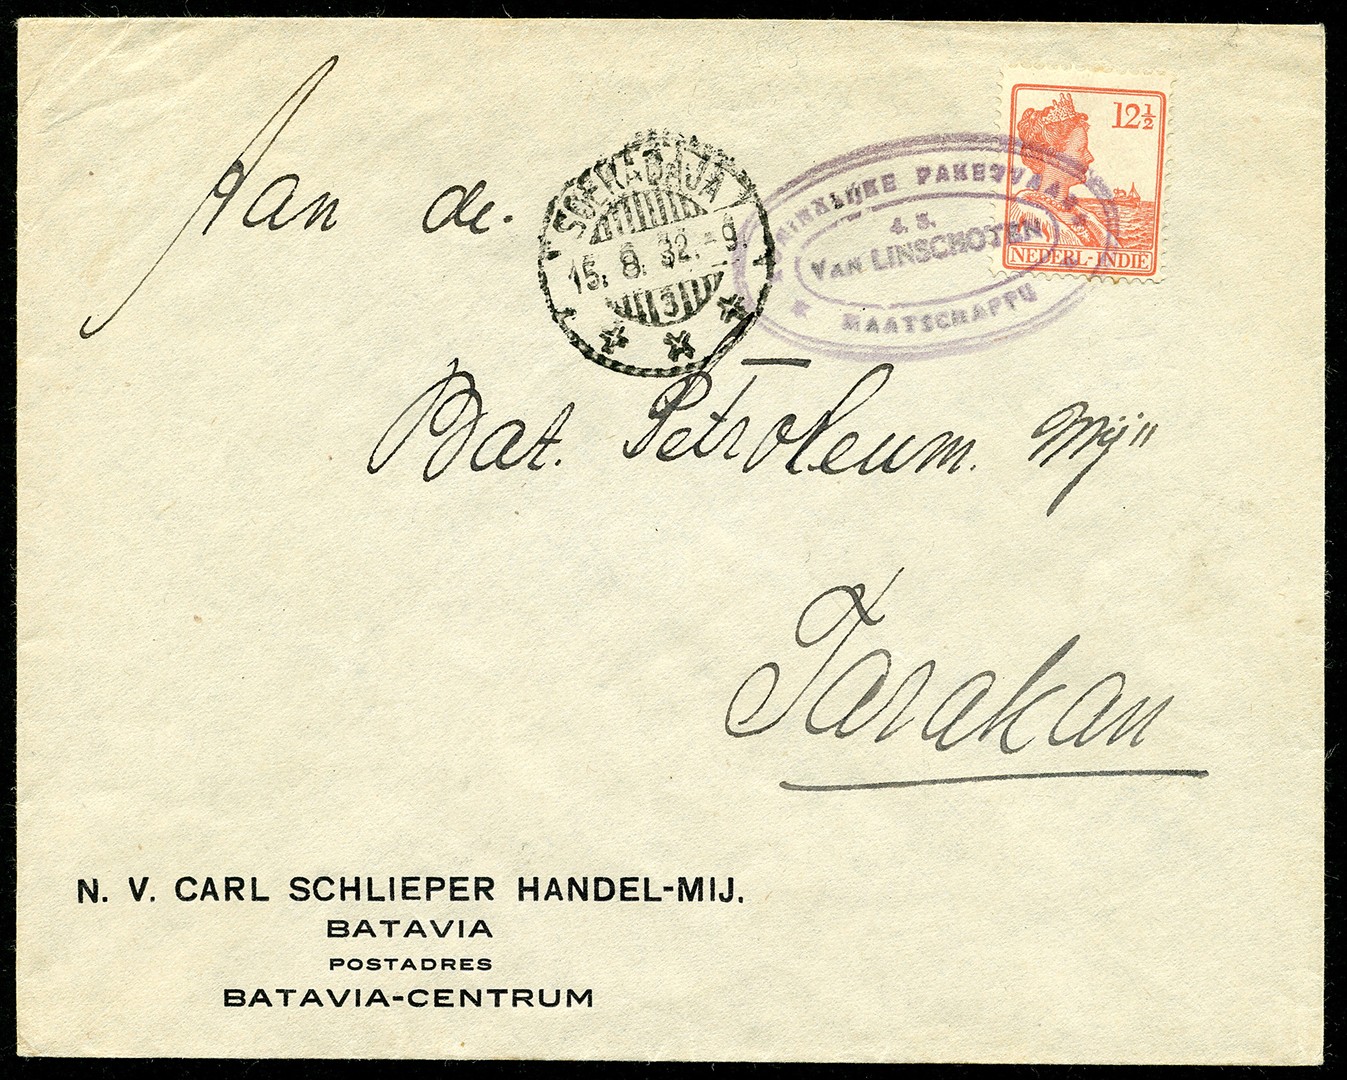 12½
NEDERL-INDIE
KONINKLIJKE PAKETVAART
4. S.
VAN LINSCHOTEN
MAATSCHAPPIJ
SOERABAJA
15. 8. 32.-9.
3
Aan de.
Bat. Petroleum. Mij"
Tarakan
N. V. CARL SCHLIEPER HANDEL-MIJ.
BATAVIA
POSTADRES
BATAVIA-CENTRUM